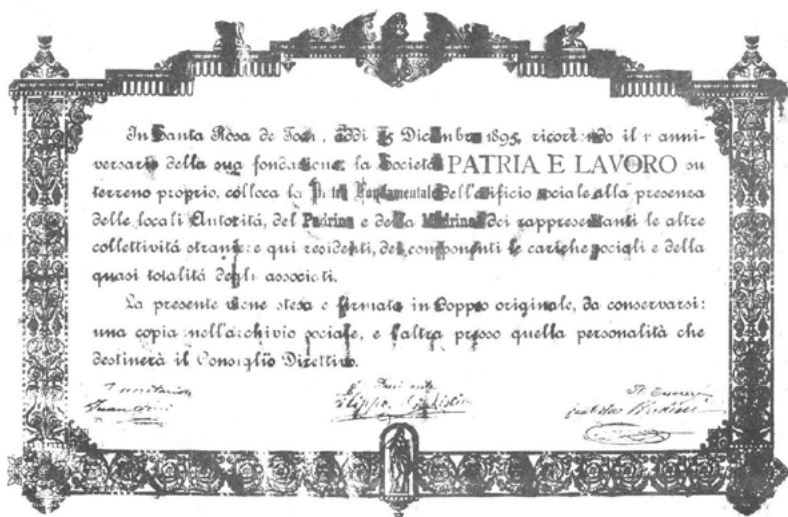 In Santa Rosa de Toay, addi 25 Dicembre 1895, ricorrendo il 1 anni-
versario della sua fondazione, la Società PATRIA E LAVORO su
terreno proprio, colloca la Pietra Fondamentale dell'edificio sociale alla presenza
delle locali Autoritá, del Padrino e della Madrina dei rappresentanti le altre
collettivitá straniere qui residenti, dei componenti le cariche sociali e della
quasi totalitá degli associati.
La presente viene stesa e firmata in doppio originale, da conservarsi:
una copia nell'archivio sociale, e l'altra presso quella personalitá che
destinerà il Consiglio Direttivo.
Il Presidente
Filippo